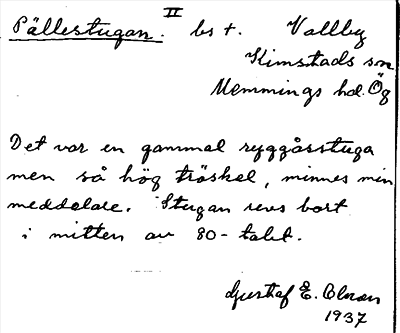 Pällestugan. II bst. Vallby
Kimstads sn
Memmings hd. Ög
Det var en gammal ryggåsstuga
men så hög tröskel, minnes min
meddelare. Stugan revs bort
i mitten av 80-talet.
Gustaf E. Olman
1937